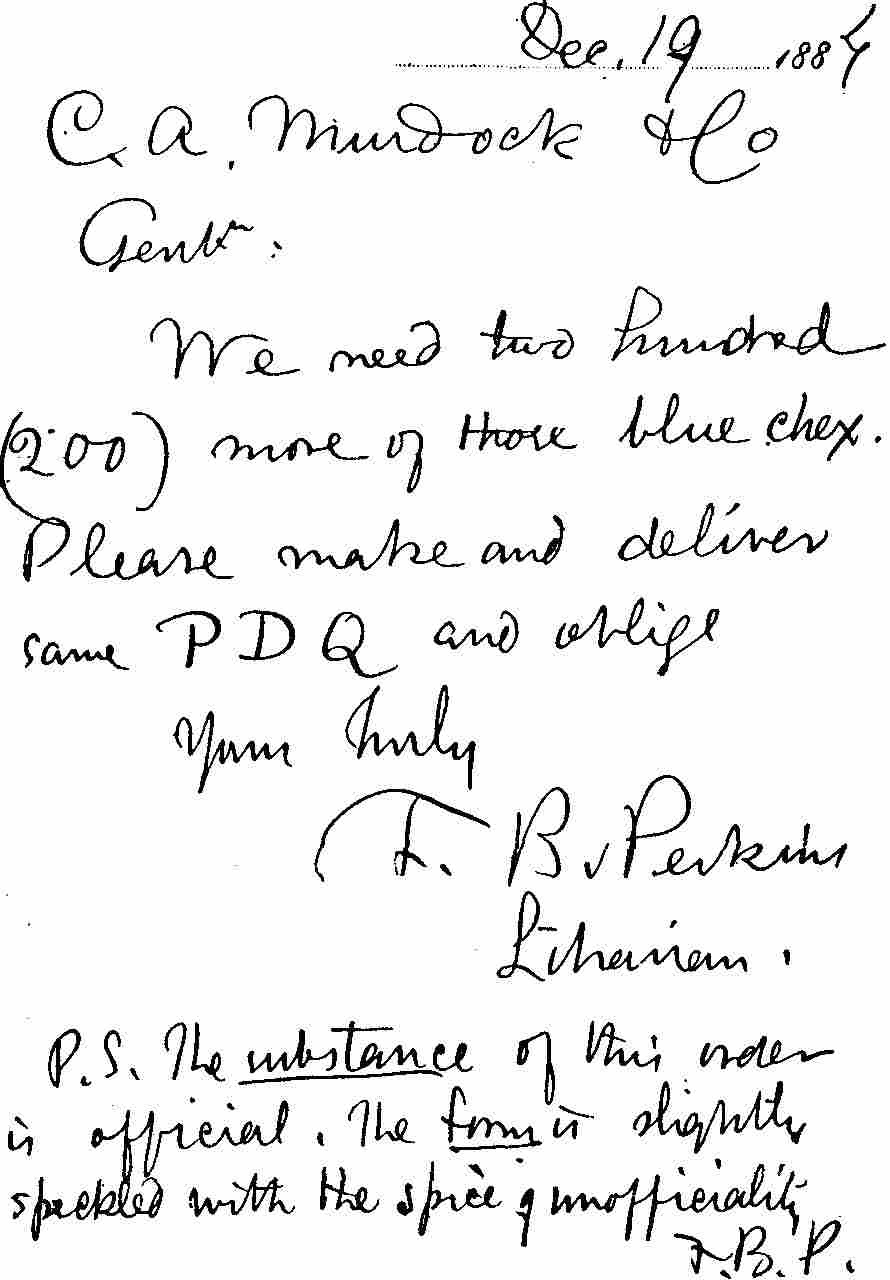 Dec. 19 1884
C. A. Murdock & Co
Gentn :
We need two hundred
(200) more of those blue chex.
Please make and deliver
same P D Q and oblige
Yours truly
F. B. Perkins
Librarian.
P.S. The substance of this order
is official. The form is slightly
speckled with the spice of unofficiality
F.B.P.